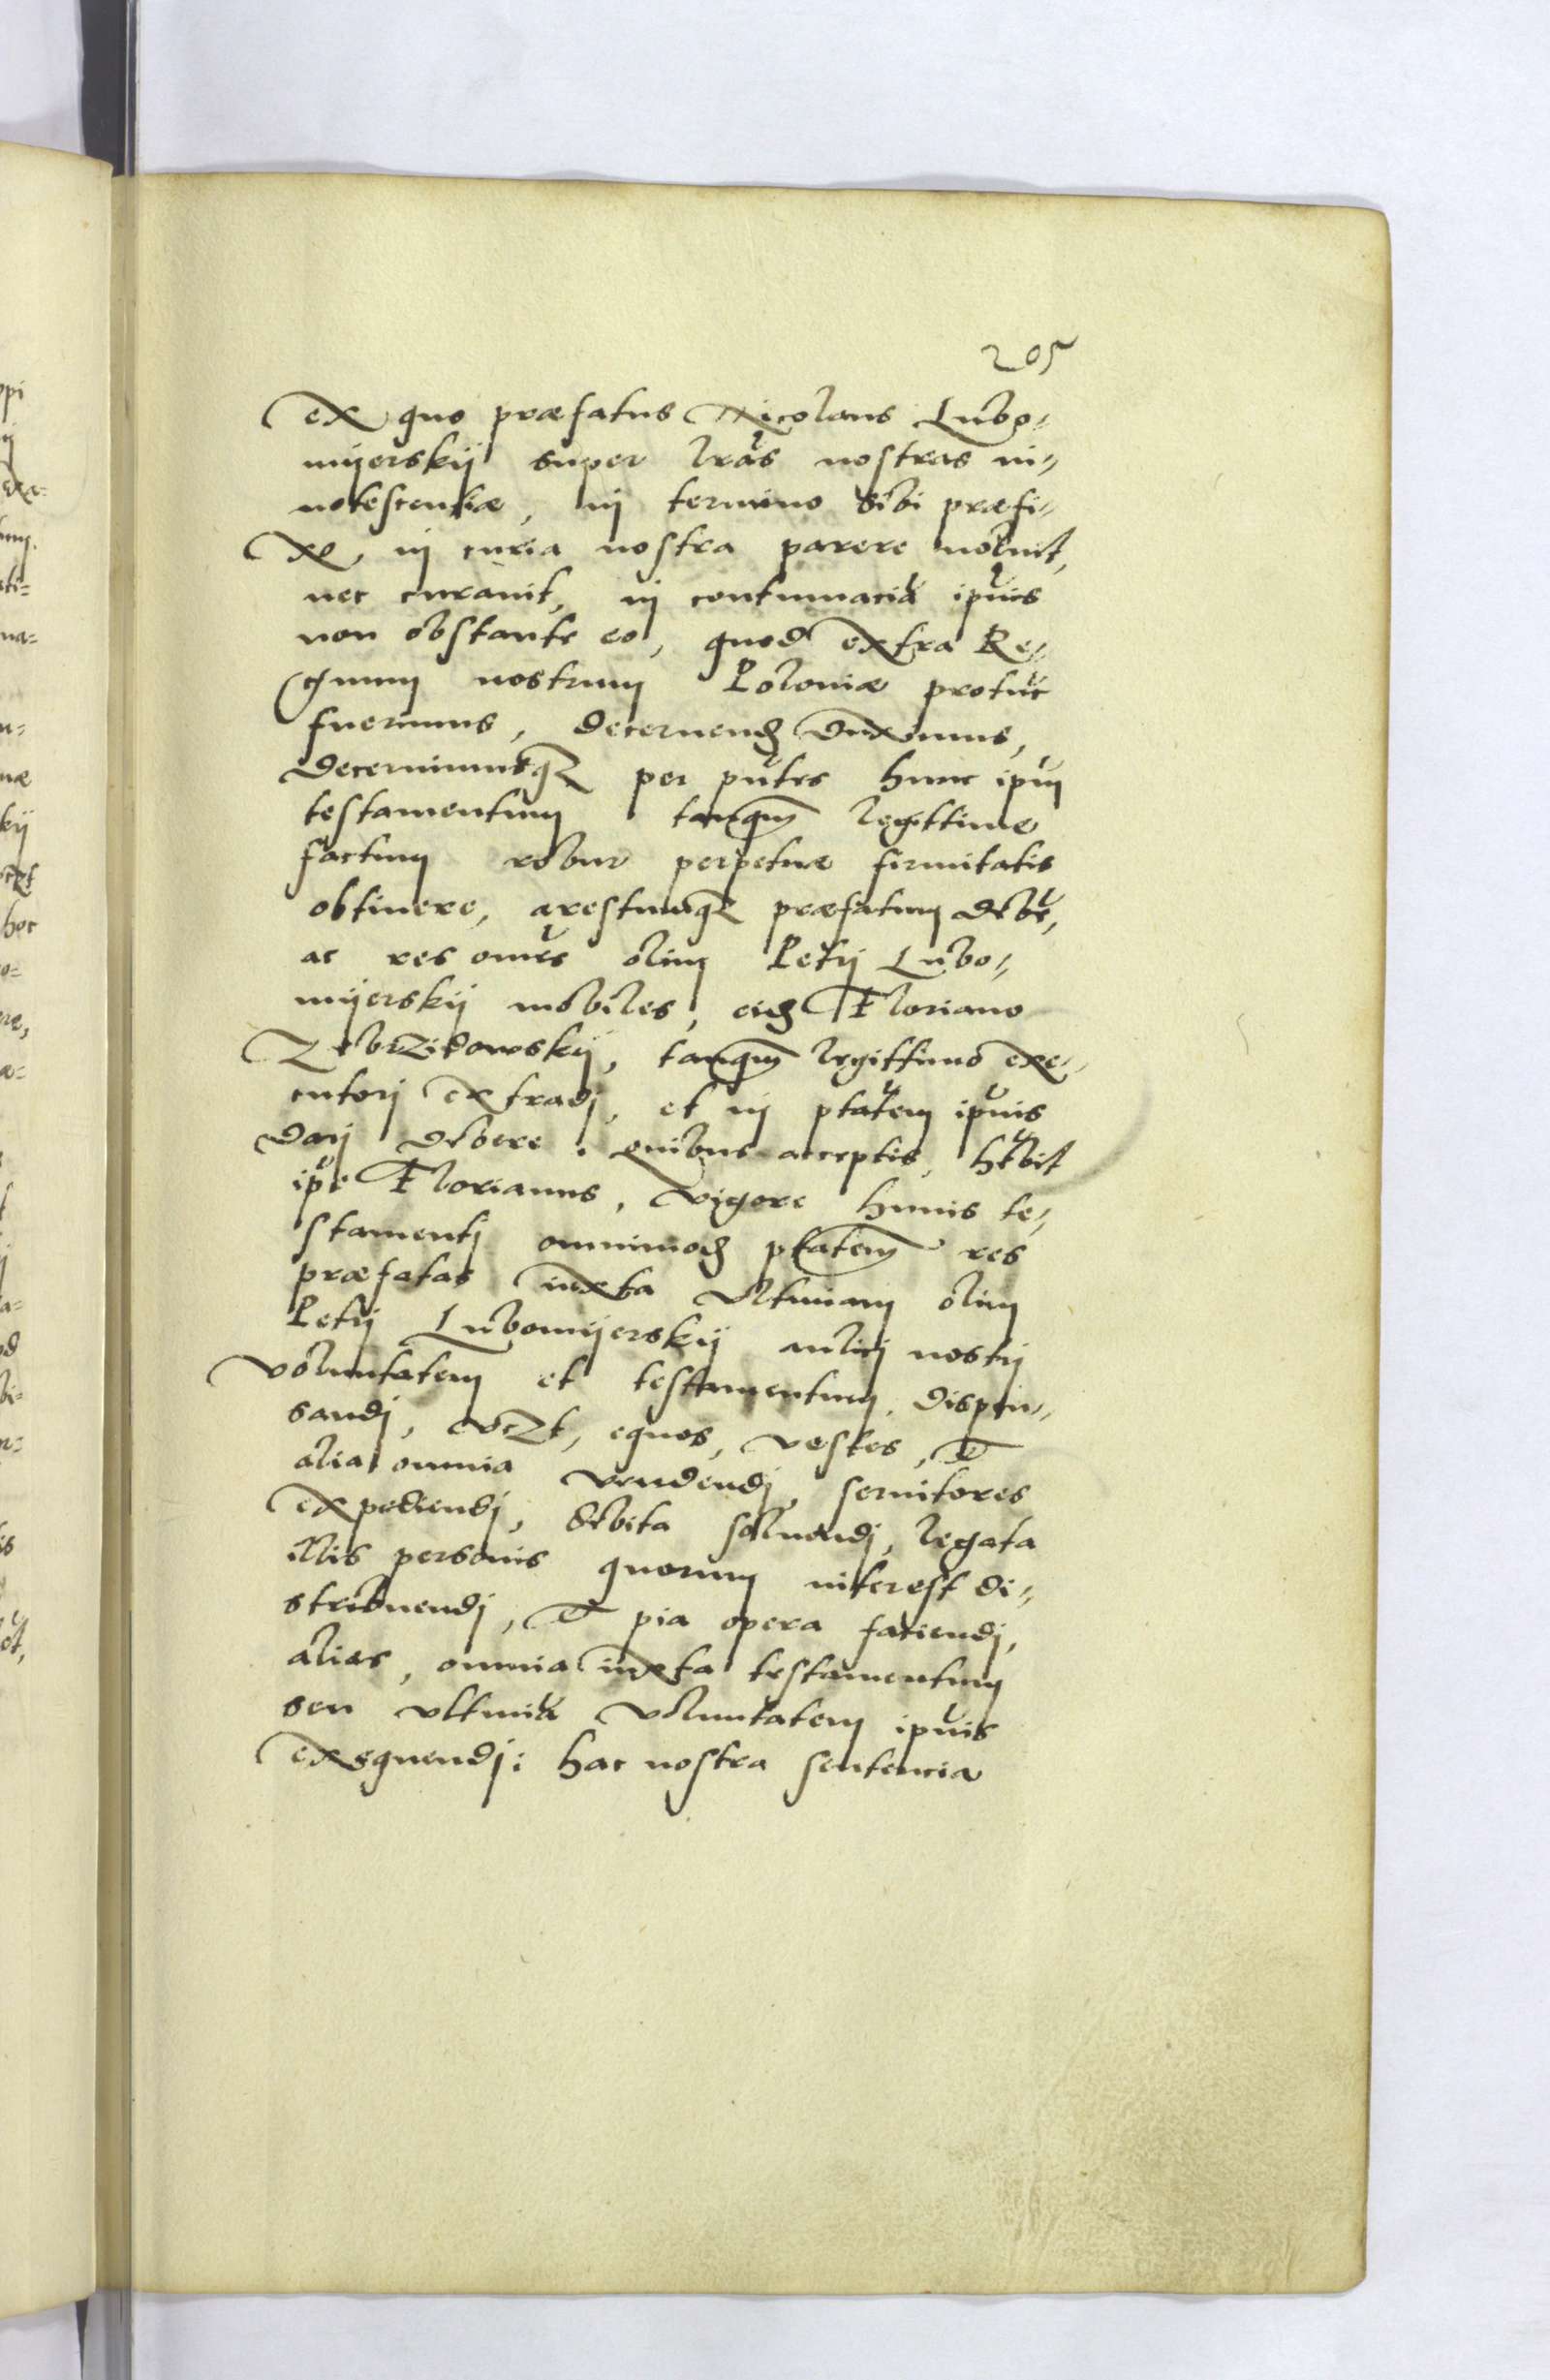 205
ex quo præfatus Nicolaus Lubo-
mijerskij super lras nostras in-
notescentiæ, in termino sibi præfi-
xo, in curia nostra parere noluit,
nec curauit, in contumaciã ipius
non obstante eo, quod extra Re-
gnum nostrum Poloniæ protũc
fuerimus, decernend duximus,
decernimusq per pntes hunc ipm
testamentum tanqm legittime
factum robur perpetuæ firmitatis
obtinere, arestumq præfatum debẽ,
ac res omẽs olim Petrj Lubo-
mijerskij mobiles, eid Floriano
Zebrzidowskij, tanqm legittimo exe-
cutorj extradj, et in ptatem ipius
darj debere: quibus acceptis, hebit
ipe Florianus, vigore huius te-
stamentj omnimod ptatem res
præfatas iuxta vltimam olim
Petrj Lubomijerskij aulicj nostrj
voluntatem et testamentum, dispen-
sandj, vczt, equos, vestes, &
alia omnia vendendj, seruitores
expediendj, debita soluendj, legata
illis personis quorum interest di-
stribuendj, & pia opera faciendj,
alias, omnia iuxta testamentum
seu vltimã voluntatem ipius
exequendj: hac nostra sentencia